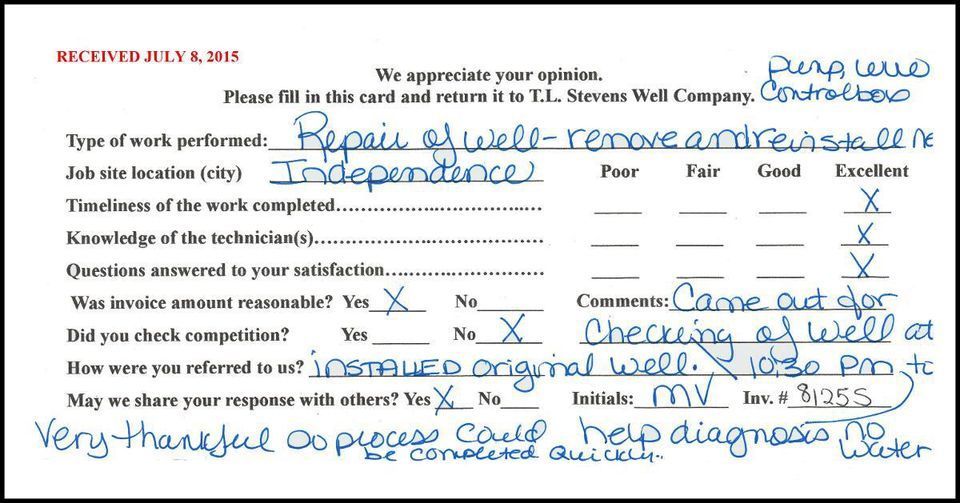 RECEIVED JULY 8, 2015
We appreciate your opinion.
Please fill in this card and return it to T.L. Stevens Well Company.
Type of work performed: Repair of well - remove and reinstall
pump, wire
Control box
Job site location (city) Independence Poor Fair Good Excellent
Timeliness of the work completed X
Knowledge of the technician(s) X
Questions answered to your satisfaction X
Was invoice amount reasonable? Yes X No Comments: Came out for
Did you check competition? Yes No X checking of well at
How were you referred to us? INSTALLED original well. 10:30 pm to
May we share your response with others? Yes X No Initials: MV Inv. # 81255
Very thankful so process could help diagnosis no
be completed quickly. water